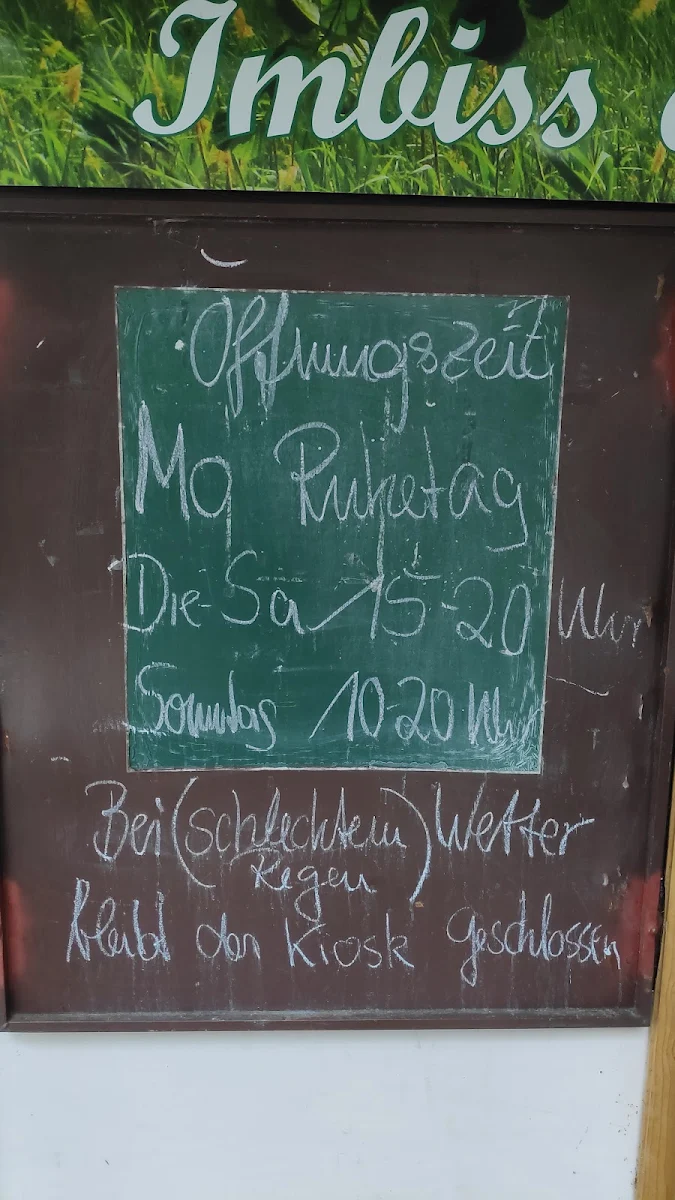 Imbiss
Öffnungszeit
Mo Ruhetag
Die-Sa 15-20 Uhr
Sonntag 10-20 Uhr
Bei (schlechtem) Wetter
Regen
bleibt der Kiosk geschlossen